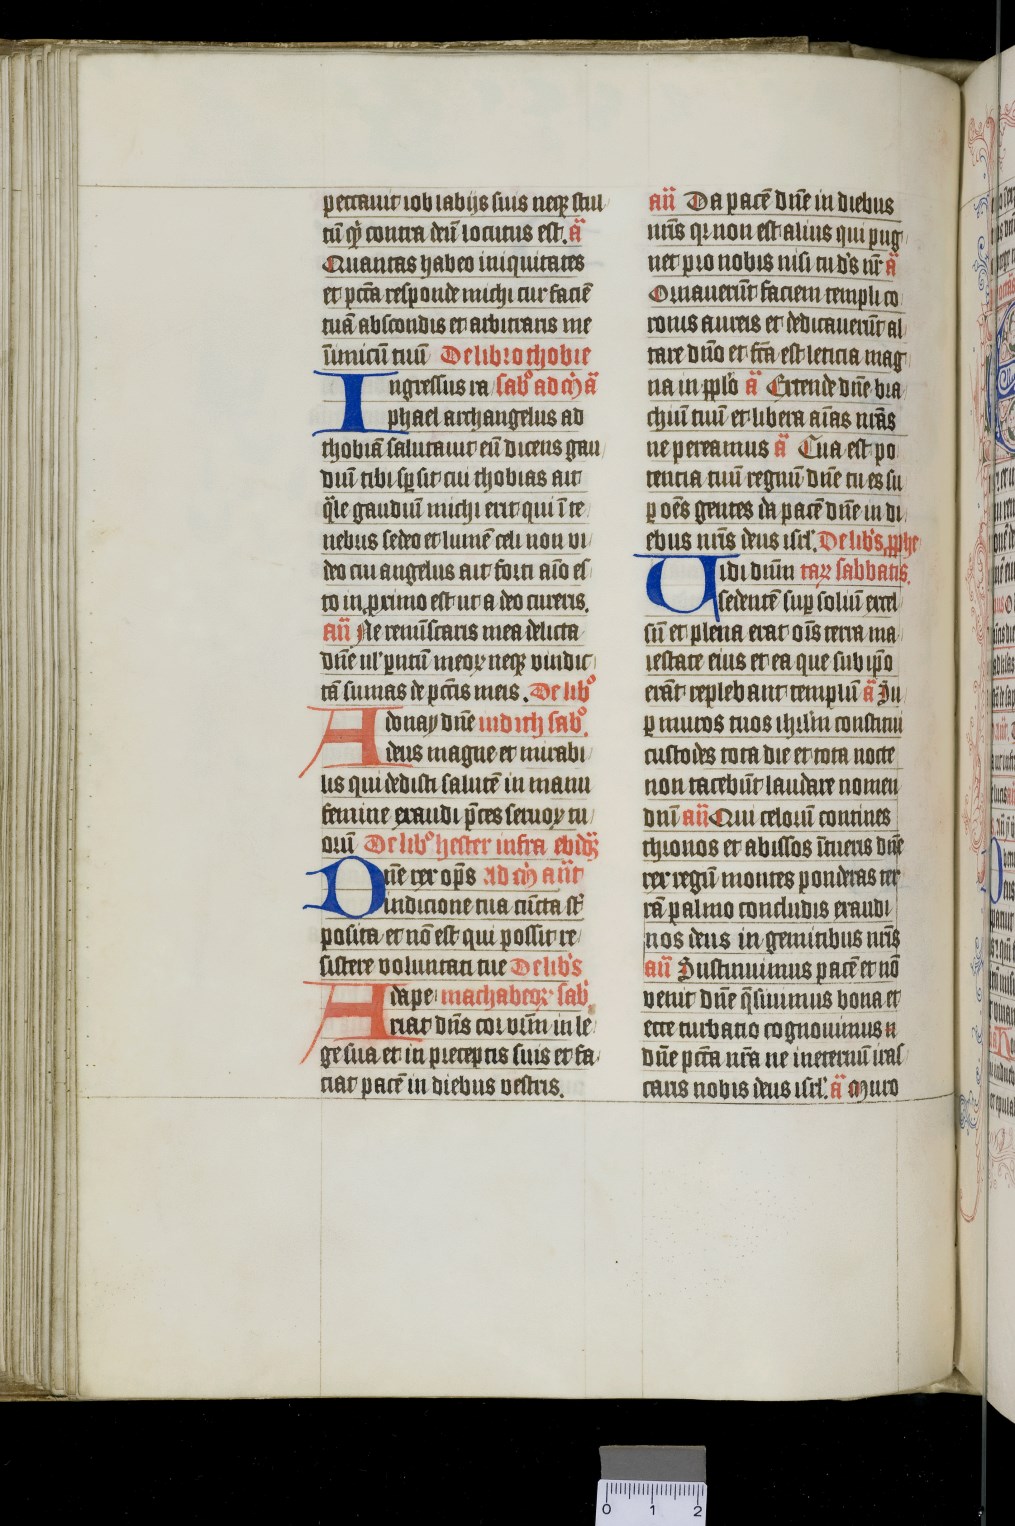 peccauit iob labijs suis neqȝ stul
tū qͥ contra deū locutus est. ā
Quantas habeo iniquitates
et pctā responde michi cur faciē
tuā abscondis et arbitraris me
inimicū tuū De libro thobie
Ingressus ra sabᵒ ad ɱ ā
phael archangelus ad
thobiā salutauit eū dicens gau
diū tibi sp̄ sit cui thobias ait
q̄le gaudiū michi erit qui ī te
nebris sedeo et lumē celi non vi
deo cui angelus ait forti aīo es
to in ꝓximo est ut a deo cureris.
añ Ne reminiscaris mea delicta
dn̄e ul' pntū meoꝝ neqȝ vindic
tā sumas de pctīs meis. De libᵒ
Adonay dn̄e iudith sabᵒ.
deus magne et mirabi
lis qui dedisti salutē in manu
femine exaudi p̄ces seruoꝝ tu
orū De libᵒ hester infra ebidȝ
Dn̄e rex op̄s ad ɱ añt
in dicione tua cūcta st̄
posita et nō est qui possit re
sistere voluntati tue De lib's
Adape machabeoꝝ sab
riat dn̄s cor vr̄m in le
ge sua et in preceptis suis et fa
ciat pacē in diebus vestris.
añ Da pacē dn̄e in diebus
nr̄is qr non est alius qui pug
net pro nobis nisi tu d's nr̄ ā
Ornauerūt faciem templi co
ronis aureis et dedicauerūt al
tare dn̄o et fc̄a est leticia mag
na in pp̄lo ā Extende dn̄e bra
chiū tuū et libera aīas nr̄as
ne pereamus ā Tua est po
tencia tuū regnū dn̄e tu es su
ꝑ oēs gentes da pacē dn̄e in di
ebus nr̄is deus isrl'. De lib's ꝓphe
Uidi dn̄m taꝝ sabbatis.
sedentē sup̄ soliū excel
sū et plena erat oīs terra ma
iestate eius et ea que sub ip̄o
erāt replebant templū ā Su
ꝑ muros tuos ihrl'm constitui
custodes tota die et tota nocte
non tacebūt laudare nomen
dn̄i añ Qui celorū contines
thronos et abissos ītueris dn̄e
rex regū montes ponderas ter
rā palmo concludis exaudi
nos deus in gemitibus nr̄is
añ Sustinuimus pacē et nō
venit dn̄e q̄siuimus bona et
ecce turbatio cognouimus
dn̄e pctā nr̄a ne ineternū iras
caris nobis deus isrl'. ā Muro
0 1 2